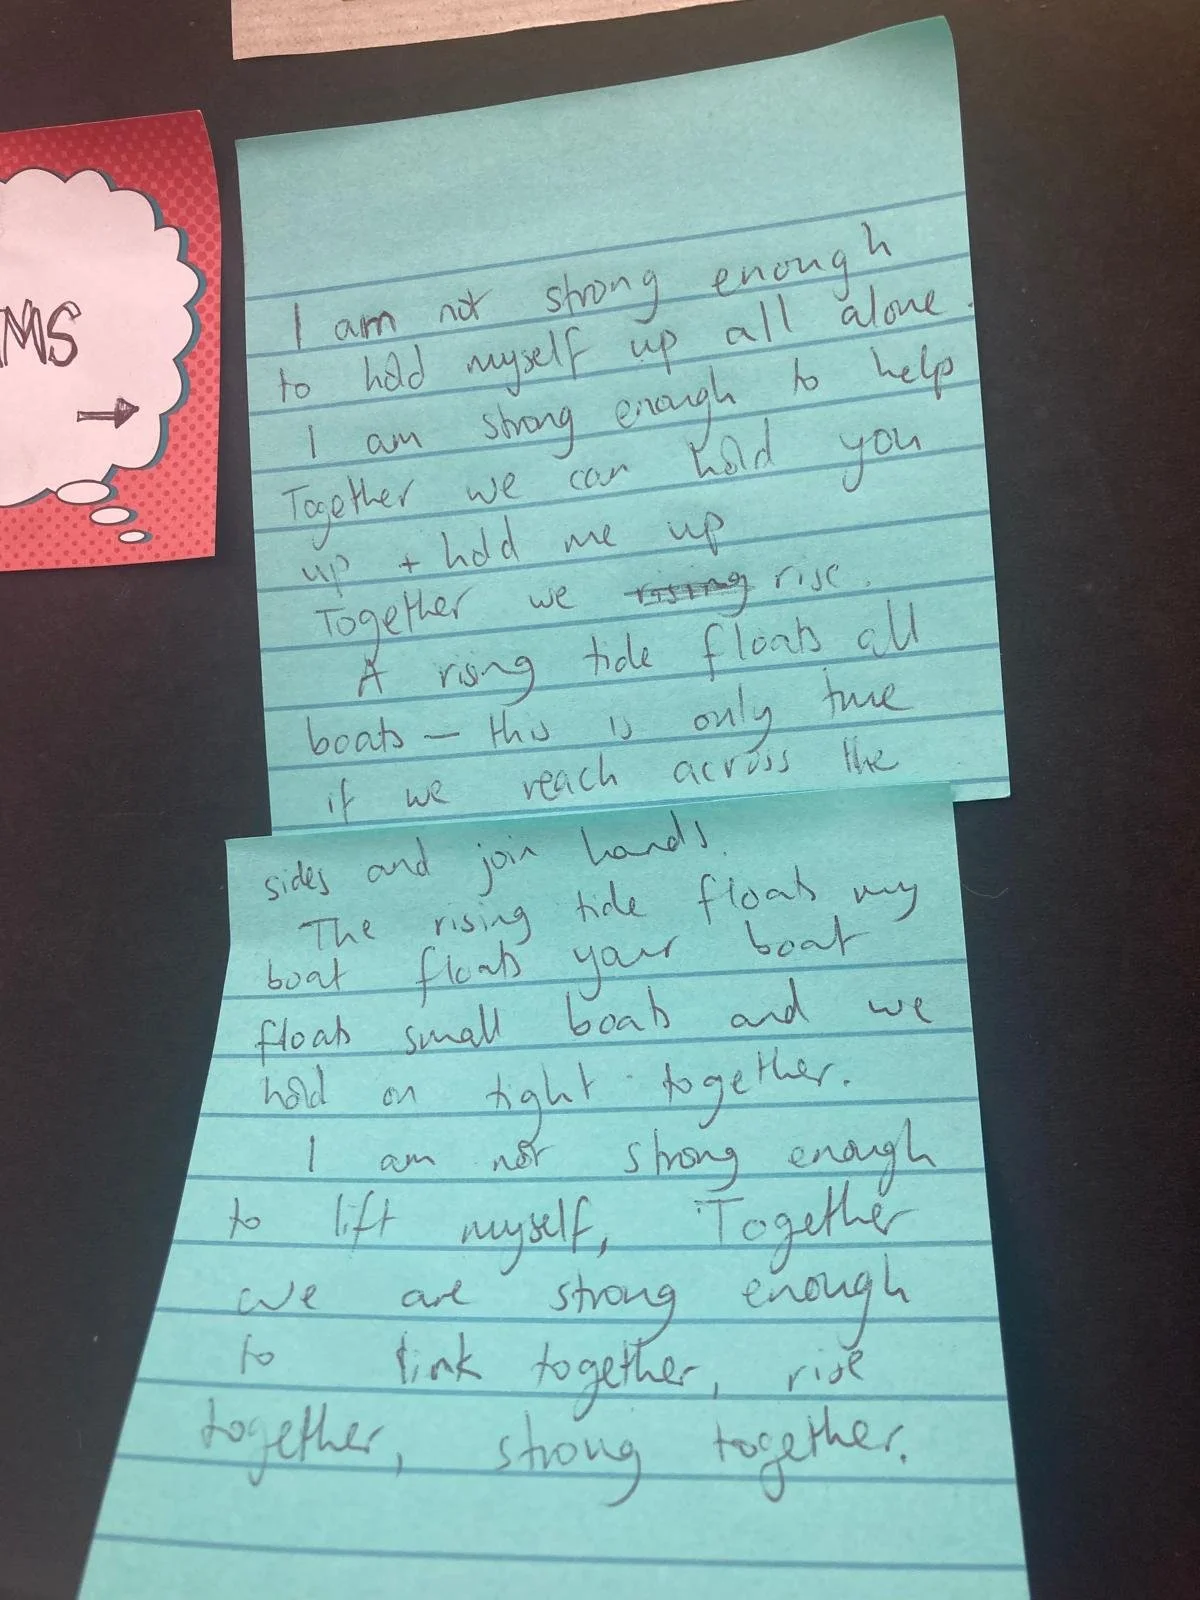 MS
I am not strong enough
to hold myself up all alone.
I am strong enough to help
Together we can hold you
up + hold me up
Together we rising rise.
A rising tide floats all
boats — this is only true
if we reach across the
sides and join hands.
The rising tide floats my
boat floats your boat
floats small boats and we
hold on tight together.
I am not strong enough
to lift myself, Together
we are strong enough
to link together, rise
together, strong together.